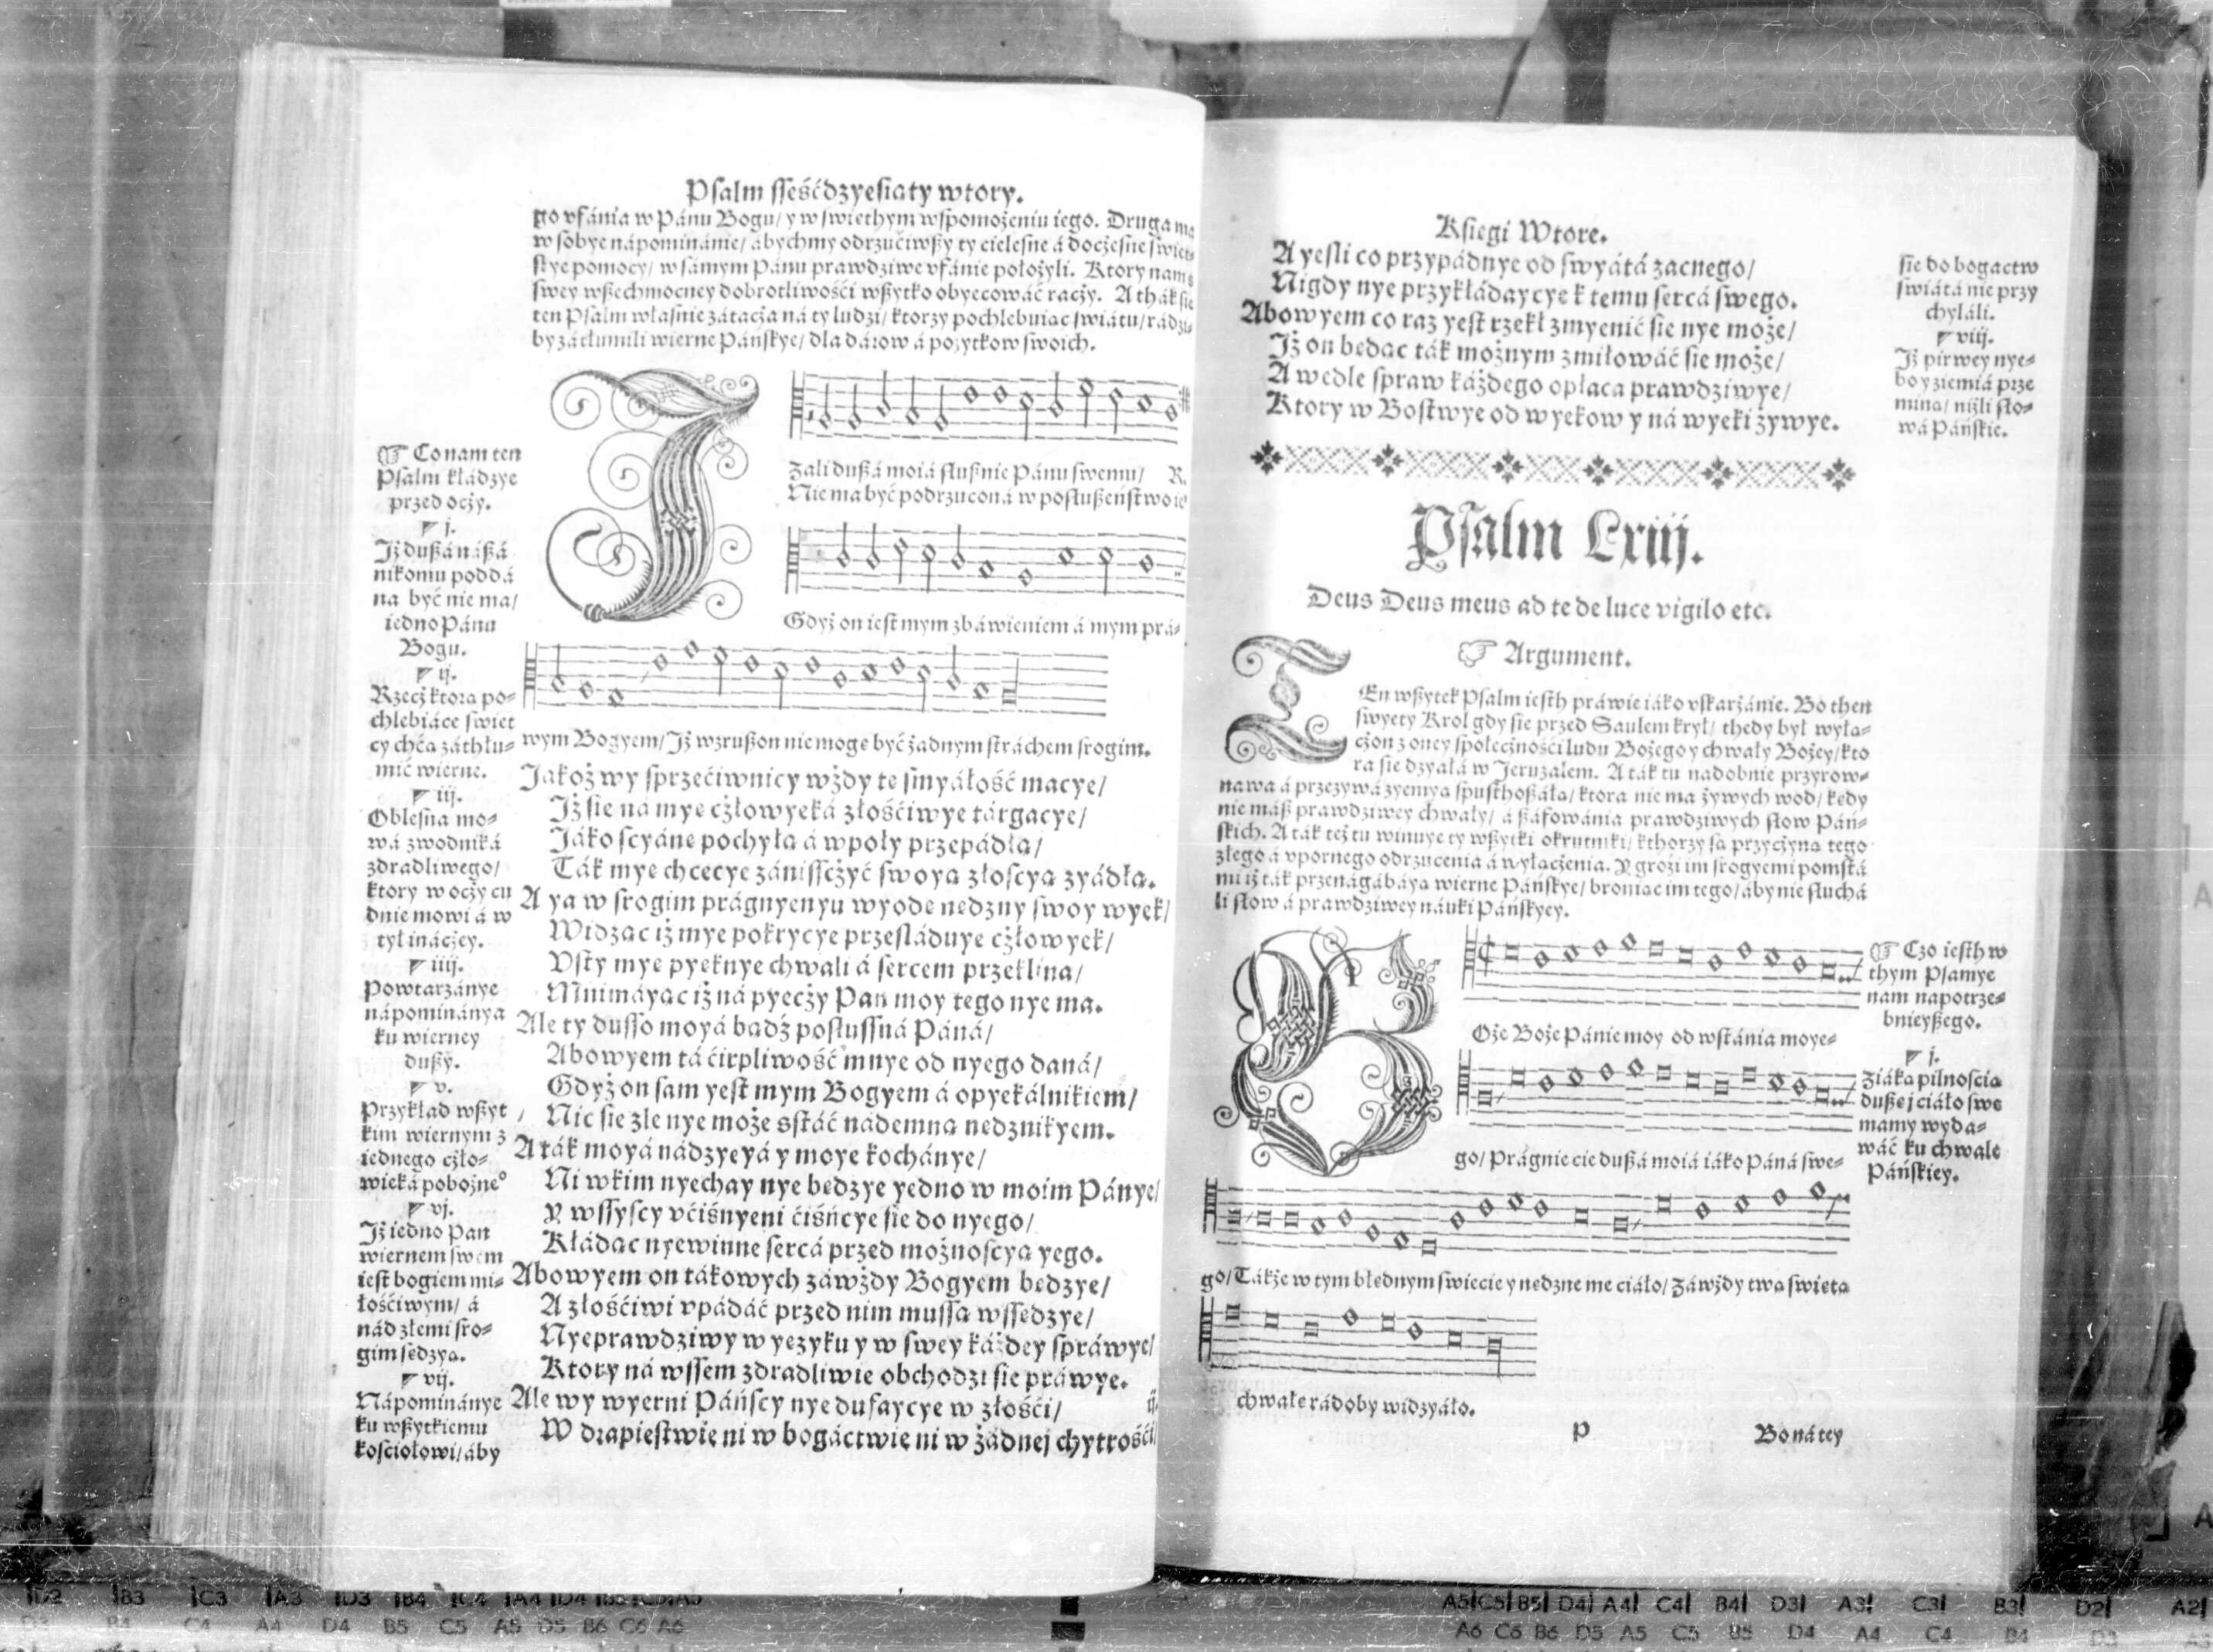 Psalm sseśćdzyesiąty wtory.
go vfánia w Pánu Bogu/ y w swięthym wspomożeniu iego. Druga ma
w sobye nápominánie/ ábychmy odrzućiwßy ty cielesne á docżesne świet-
skye pomocy/ w sámym Pánu prawdziwe vfánie położyli. Ktory nam s
swey wßechmocney dobrotliwośći wßytko obyecowáć racży. A thák się
ten Psalm własnie zátacża ná ty ludzi/ ktorzy pochlebuiąc swiátu/ rádzi
by zátłumili wierne Páńskye/ dla dárow á pożytkow swoich.
Co nam ten
Psalm kłádzye
przed ocży.
j.
Iż dußá náßá
nikomu poddá
na być nie ma/
iedno Pánu
Bogu.
ij.
Rzecż ktora po-
chlebiáce swiet
cy chcą záthłu-
mić wierne.
iij.
Obłesna mo-
wá zwodniká
zdradliwego/
ktory w ocży cu
dnie mowi á w
tył inácżey.
iiij.
Powtarzánye
nápominánya
ku wierney
dußy.
v.
Przykład wßyt
kim wiernym z
iednego cżło-
wieká pobożne°
vj.
Iż iedno Pan
wiernem swem
iest bogiem mi-
łośćiwym/ á
nád złemi sro-
gim sędzyą.
vij.
Nápominánye
ku wßytkiemu
kosciołowi/ áby
I
Zali dußá moiá słußnie Pánu swemu/ R.
Nie ma być podrzuconá w posłußeństwo ie°
Gdyż on iest mym zbáwieniem á mym prá-
wym Bogyem/ Iż wzrußon nie mogę być żadnym stráchem srogim.
Jakoż wy sprzećiwnicy wżdy tę smyáłość macye/
Iż się ná mye cżłowyeká złośćiwye tárgacye/
Jáko scyáne pochyłą á wpoły przepádłą/
Ták mye chcecye zánisscżyć swoyą złoscyą zyádłą.
A ya w srogim prágnyenyu wyodę nędzny swoy wyek/
Widząc iż mye pokrycye przesláduye cżłowyek/
Vsty mye pyęknye chwali á sercem przeklina/
Mnimáyąc iż ná pyecży Pan moy tego nye ma.
Ale ty dusso moyá bądź posłussná Páná/
Abowyem tá ćirpliwość mnye od nyego daná/
Gdyż on sam yest mym Bogyem á opyekálnikiem/
Nic się zle nye może sstáć nademną nędznikyem.
A ták moyá nádzyeyá y moye kochánye/
Ni wkim nyechay nye będzye yedno w moim Pánye/
Y wssyscy vćiśnyeni ćiśńcye się do nyego/
Kłádąc nyewinne sercá przed możnoscyą yego.
Abowyem on tákowych záwżdy Bogyem będzye/
A złośćiwi vpádáć przed nim mussą wssędzye/
Nyeprawdziwy w yęzyku y w swey káżdey spráwye/
Ktory ná wssem zdradliwie obchodzi się práwye.
Ale wy wyerni Páńscy nye dufaycye w złośći/ ij.
W drapiestwie ni w bogáctwie ni w żádnej chytrośći/
Księgi Wtore.
A yesli co przypádnye od swyátá zacnego/
Nigdy nye przykłádaycye k temu sercá swego.
Abowyem co raz yest rzekł zmyenić się nye może/
Iż on będąc ták możnym zmiłowáć się może/
A wedle spraw káżdego opłaca prawdziwye/
Ktory w Bostwye od wyekow y ná wyeki żywye.
się do bogactw
swiátá nie przy
chyláli.
viij.
Iż pirwey nye-
bo y ziemiá prze
miną/ niżli sło-
wá Páńskie.
Psalm Lxiij.
Deus Deus meus ad te de luce vigilo etc.
Argument.
TEn wßytek Psalm iesth práwie iáko vskarżánie. Bo then
swyęty Krol gdy się przed Saulem krył/ thedy był wyłą-
cżon z oney społecżnośći ludu Bożego y chwały Bożey/ kto
ra się dzyałá w Jeruzalem. A ták tu nadobnie przyrow-
nawa á przezywá zyemyą spusthoßáłą/ ktora nie ma żywych wod/ kędy
nie máß prawdziwey chwały/ á ßáfowánia prawdziwych słow Páń-
skich. A ták też tu winuye ty wßytki okrutniki/ kthorzy są przycżyną tego
złego á vpornego odrzucenia á wyłącżenia. Y grozi im srogyemi pomstá
mi iż ták przenágábáyą wierne Páńskye/ broniąc im tego/ áby nie słuchá
li słow á prawdziwey náuki Páńskyey.
Czo iesth w
thym Psamye
nam napotrze-
bnieyßego.
j.
Ziáką pilnoscią
dußę j ciáło swe
mamy wyda-
wáć ku chwale
Páńskiey.
B
Oże Boże Pánie moy od wstánia moye-
go/ Prágnie cie dußá moiá iáko Páná swe-
go/ Tákże w tym błędnym swiecie y nędzne me ciáło/ Záwżdy twą swiętą
chwałę rádoby widzyáło.
P Bo ná tey